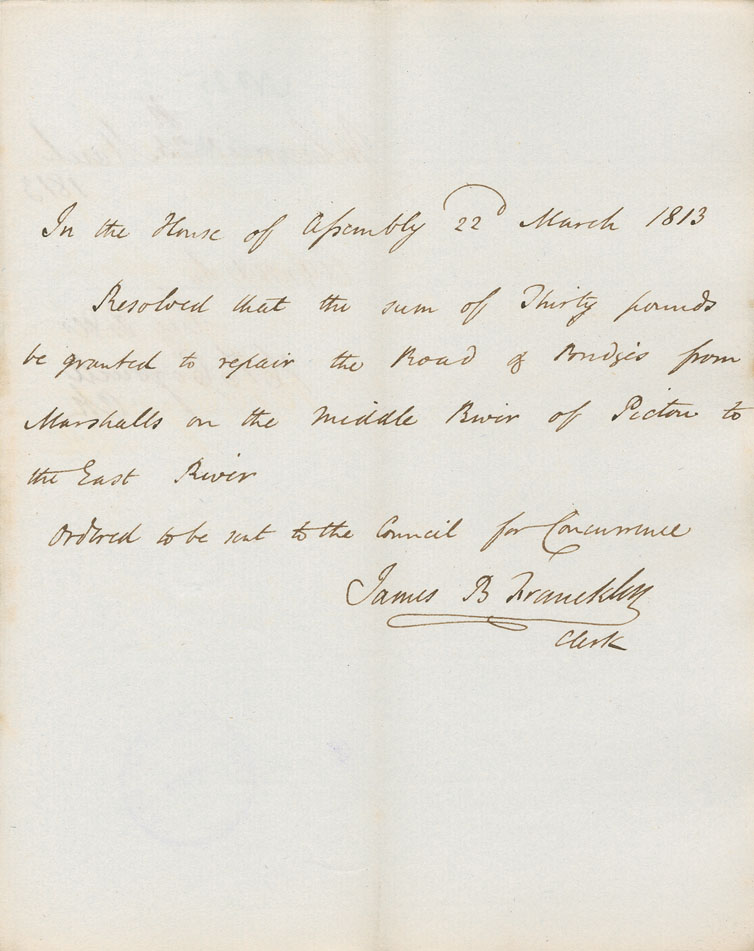 In the House of Assembly 22d March 1813
Resolved that the sum of Thirty pounds
be granted to repair the Road & Bridges from
Marshalls on the Middle River of Pictou to
the East River
Ordered to be sent to the Council for Concurrence
James B Franckling
Clerk
1813